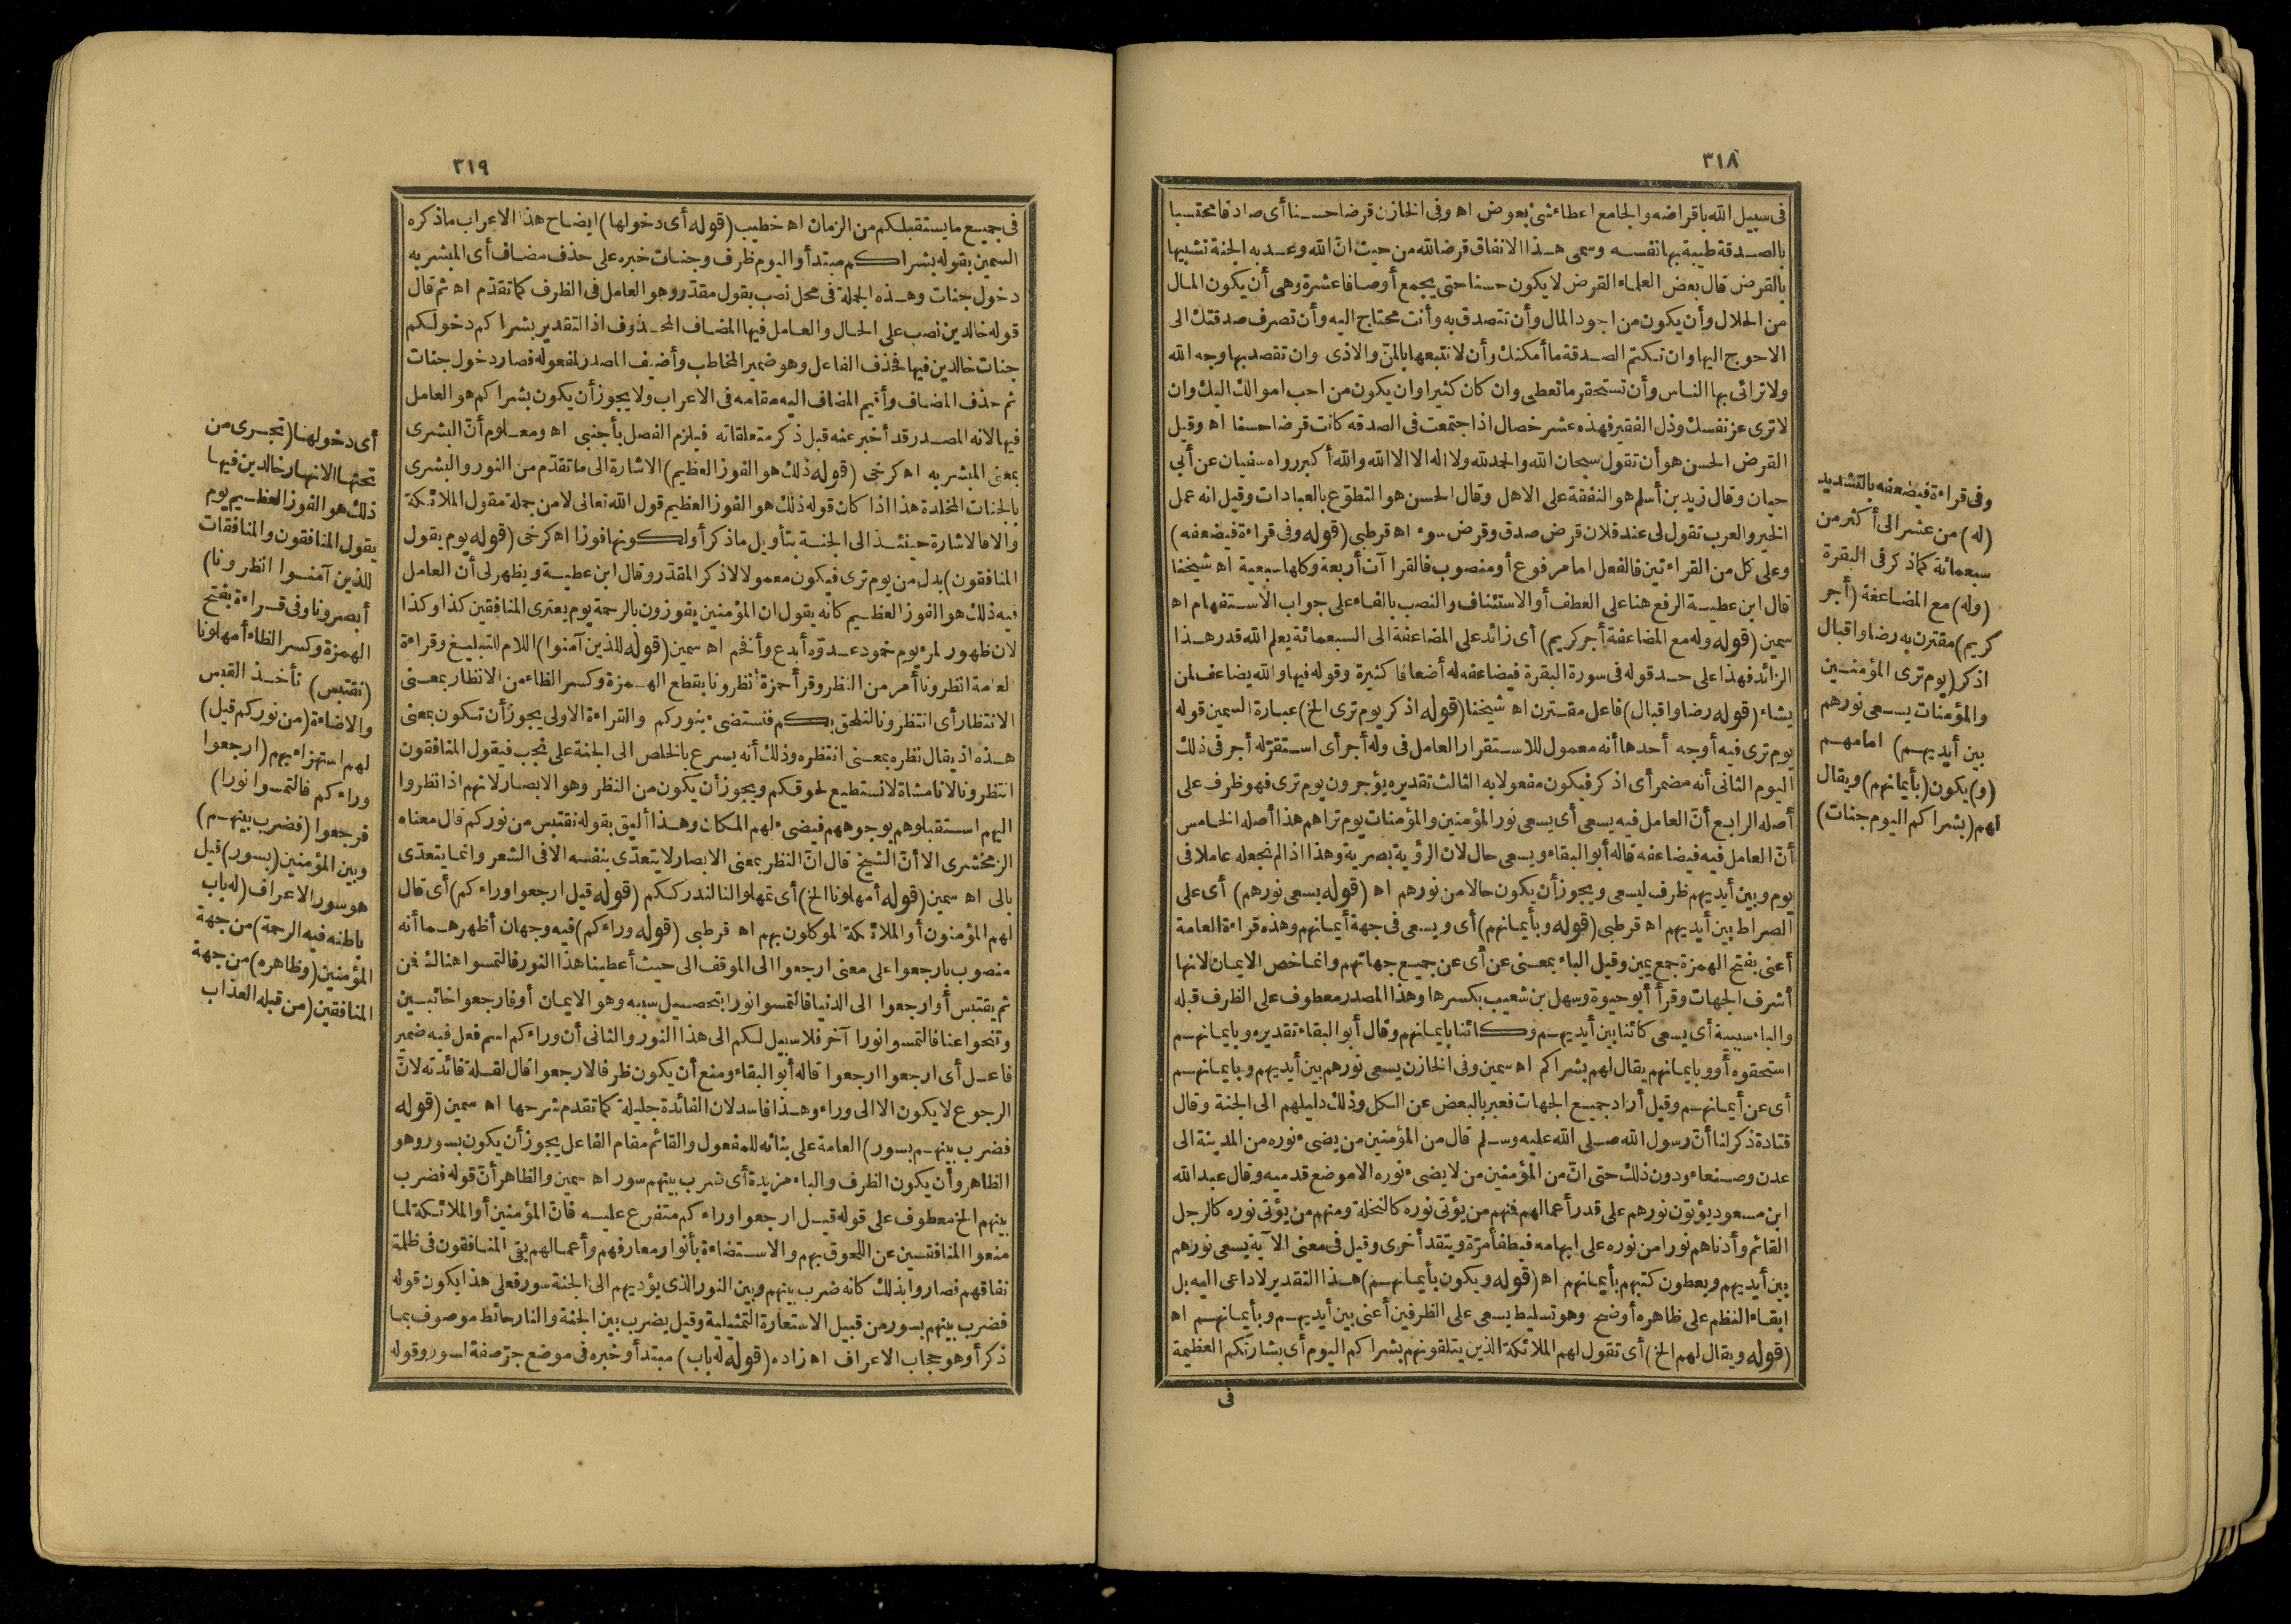 ٣١٨
فى سبيل الله باقراضه والجامع اعطاء شئ بعوض اه وفى الخازن قرضا حسنا أى صادقا محتسبا
بالصدقة طيبة بها نفسه وسمى هذا الانفاق قرضا لله من حيث ان الله وعد به الجنة تشبيها
بالقرض قال بعض العلماء القرض لا يكون حسنا حتى يجمع أوصافا عشرة وهى أن يكون المال
من الحلال وأن يكون من اجود المال وأن تتصدق به وأنت محتاج اليه وأن تصرف صدقتك الى
الاحوج اليها وان تكتم الصدقة ما أمكنك وأن لا تتبعها بالمنّ والاذى وان تقصد بها وجه الله
ولا ترائى بها الناس وأن تستحقر ما تعطى وان كان كثيرا وان يكون من احب اموالك اليك وان
لا ترى عز نفسك وذل الفقير فهذه عشر خصال اذا اجتمعت فى الصدقة كانت قرضا حسنا اه وقيل
القرض الحسن هو أن تقول سبحان الله والحمد لله ولا اله الا الله والله أكبر رواه سفيان عن أبي
حيان وقال زيد بن أسلم هو النفقة على الاهل وقال الحسن هو التطوّع بالعبادات وقيل انه عمل
الخير والعرب تقول لى عند فلان قرض صدق وقرض سوء اه قرطبى (قوله وفى قراءة فيضعفه)
وعلى كل من القراءتين فالفعل اما مرفوع أو منصوب فالقراآت أربعة وكلها سبعية اه شيخنا
قال ابن عطية الرفع هنا على العطف أو الاستئناف والنصب بالفاء على جواب الاستفهام اه
سمين (قوله وله مع المضاعفة أجر كريم) أى زائد على المضاعفة الى السبعمائة يعلم الله قدر هذا
الزائد فهذا على حد قوله فى سورة البقرة فيضاعفه له أضعافا كثيرة وقوله فيها والله يضاعف لمن
يشاء (قوله رضا واقبال) فاعل مقترن اه شيخنا (قوله اذكر يوم ترى الخ) عبارة السمين قوله
يوم ترى فيه أوجه أحدها أنه معمول للاستقرار العامل فى وله أجر أى استقرّ له أجر فى ذلك
اليوم الثانى أنه مضمر أى اذكر فيكون مفعولا به الثالث تقديره يؤجرون يوم ترى فهو ظرف على
أصله الرابع أنّ العامل فيه يسعى أى يسعى نور المؤمنين والمؤمنات يوم تراهم هذا أصله الخامس
أنّ العامل فيه فيضاعفه قاله أبو البقاء ويسعى حال لان الرؤية بصرية وهذا اذا لم نجعله عاملا فى
يوم وبين أيديهم ظرف ليسعى ويجوز أن يكون حالا من نورهم اه (قوله يسعى نورهم) أى على
الصراط بين أيديهم اه قرطبى (قوله وبأيمانهم) أى ويسعى فى جهة أيمانهم وهذه قراءة العامة
أعنى بفتح الهمزة جمع يمين وقيل الباء بمعنى عن أى عن جميع جهاتهم وانما خص الايمان لانها
أشرف الجهات وقرأ أبو حيوة وسهل بن شعيب بكسرها وهذا المصدر معطوف على الظرف قبله
والباء سببية أى يسعى كائنا بين أيديهم وكائنا بايمانهم وقال أبو البقاء تقديره وبايمانهم
استحقوه أو وبايمانهم يقال لهم بشراكم اه سمين وفى الخازن يسعى نورهم بين أيديهم وبايمانهم
أى عن أيمانهم وقيل أراد جميع الجهات فعبر بالبعض عن الكل وذلك دليلهم الى الجنة وقال
قتادة ذكر لنا أنّ رسول الله صلى الله عليه وسلم قال من المؤمنين من يضىء نوره من المدينة الى
عدن وصنعاء ودون ذلك حتى انّ من المؤمنين من لا يضىء نوره الا موضع قدميه وقال عبد الله
ابن مسعود يؤتون نورهم على قدر أعمالهم فمنهم من يؤتى نوره كالنخلة ومنهم من يؤتى نوره كالرجل
القائم وأدناهم نورا من نوره على ابهامه فيطفأ مرّة ويتقد أخرى وقيل فى معنى الآية يسعى نورهم
بين أيديهم ويعطون كتبهم بأيمانهم اه (قوله ويكون بأيمانهم) هذا التقدير لا داعى اليه بل
ابقاء النظم على ظاهره أوضح وهو تسليط يسعى على الظرفين أعنى بين أيديهم وبأيمانهم اه
(قوله ويقال لهم الخ) أى تقول لهم الملائكة الذين يتلقونهم بشراكم اليوم أى بشارتكم العظيمة
فى
وفى قراءة فيضعفه بالتشديد
(له) من عشر الى أكثر من
سبعمائة كما ذكر فى البقرة
(وله) مع المضاعفة (أجر
كريم) مقترن به رضا واقبال
اذكر (يوم ترى المؤمنين
والمؤمنات يسعى نورهم
بين أيديهم) امامهم
(و) يكون (بأيمانهم) ويقال
لهم (بشراكم اليوم جنات)
٣١٩
فى جميع ما يستقبلكم من الزمان اه خطيب (قوله أى دخولها) ايضاح هذا الاعراب ما ذكره
السمين بقوله بشراكم مبتدأ واليوم ظرف وجنات خبره على حذف مضاف أى المبشر به
دخول جنات وهذه الجملة فى محل نصب بقول مقدّر وهو العامل فى الظرف كما تقدّم اه ثم قال
قوله خالدين نصب على الحال والعامل فيها المضاف المحذوف اذ التقدير بشراكم دخولكم
جنات خالدين فيها فحذف الفاعل وهو ضمير المخاطب وأضيف المصدر لمفعوله فصار دخول جنات
ثم حذف المضاف وأقيم المضاف اليه مقامه فى الاعراب ولا يجوز أن يكون بشراكم هو العامل
فيها لانه المصدر قد أخبر عنه قبل ذكر متعلقاته فيلزم الفصل بأجنبى اه ومعلوم أنّ البشرى
بمعنى المبشر به اه كرخى (قوله ذلك هو الفوز العظيم) الاشارة الى ما تقدّم من النور والبشرى
بالجنات المخلدة هذا اذا كان قوله ذلك هو الفوز العظيم قول الله تعالى لا من جملة مقول الملائكة
والا فالاشارة حينئذ الى الجنة بتأويل ما ذكر أو لكونها فوزا اه كرخى (قوله يوم يقول
المنافقون) بدل من يوم ترى فيكون معمولا لاذكر المقدّر وقال ابن عطية ويظهر لى أن العامل
فيه ذلك هو الفوز العظيم كانه يقول ان المؤمنين يفوزون بالرحمة يوم يعترى المنافقين كذا وكذا
لان ظهور لمرء يوم خمود عدوّه أبدع وأفخم اه سمين (قوله للذين آمنوا) اللام للتبليغ وقراءة
العامة انظرونا أمر من النظر وقرأ حمزة أنظرونا بقطع الهمزة وكسر الظاء من الانظار بمعنى
الانتظار أى انتظرونا لنلحق بكم فنستضىء بنوركم والقراءة الاولى يجوز أن تكون بمعنى
هذه اذ يقال نظره بمعنى انتظره وذلك أنه يسرع بالخلص الى الجنة على نجب فيقول المنافقون
انتظرونا لانا مشاة لا نستطيع لحوقكم ويجوز أن يكون من النظر وهو الابصار لانهم اذا نظروا
اليهم استقبلوهم بوجوههم فيضىء لهم المكان وهذا أليق بقوله نقتبس من نوركم قال معناه
الزمخشرى الا أنّ الشيخ قال انّ النظر بمعنى الابصار لا يتعدّى بنفسه الا فى الشعر وانما يتعدّى
بالى اه سمين (قوله أمهلونا الخ) أى تمهلوا لنا لندرككم (قوله قيل ارجعوا وراءكم) أى قال
لهم المؤمنون أو الملائكة الموكلون بهم اه قرطبى (قوله وراءكم) فيه وجهان أظهرهما أنه
منصوب بارجعوا على معنى ارجعوا الى الموقف الى حيث أعطينا هذا النور فالتمسوا هنالك فمن
ثم يقتبس أو ارجعوا الى الدنيا فالتمسوا نورا بتحصيل سببه وهو الايمان أو فارجعوا خائبين
وتنحوا عنا فالتمسوا نورا آخر فلا سبيل لكم الى هذا النور والثانى أن وراءكم اسم فعل فيه ضمير
فاعل أى ارجعوا ارجعوا قاله أبو البقاء ومنع أن يكون ظرفا لارجعوا قال لقلة فائدته لانّ
الرجوع لا يكون الا الى وراء وهذا فاسد لان الفائدة جليلة كما تقدم شرحها اه سمين (قوله
فضرب بينهم بسور) العامة على بنائه للمفعول والقائم مقام الفاعل يجوز أن يكون بسور وهو
الظاهر وأن يكون الظرف والباء مزيدة أى ضرب بينهم سور اه سمين والظاهر أنّ قوله فضرب
بينهم الخ معطوف على قوله قيل ارجعوا وراءكم متفرع عليه فانّ المؤمنين أو الملائكة لما
منعوا المنافقين عن اللحوق بهم والاستضاءة بأنوار معارفهم وأعمالهم بقى المنافقون فى ظلمة
نفاقهم فصاروا بذلك كانه ضرب بينهم وبين النور الذى يؤديهم الى الجنة سور فعلى هذا يكون قوله
فضرب بينهم بسور من قبيل الاستعارة التمثيلية وقيل يضرب بين الجنة والنار حائط موصوف بما
ذكر أو هو حجاب الاعراف اه زاده (قوله له باب) مبتدأ وخبره فى موضع جرّ صفة لسور وقوله
أى دخولها (تجرى من
تحتها الانهار خالدين فيها
ذلك هو الفوز العظيم يوم
يقول المنافقون والمنافقات
للذين آمنوا انظرونا)
أبصرونا وفى قراءة بفتح
الهمزة وكسر الظاء أمهلونا
(نقتبس) نأخذ القبس
والاضاءة (من نوركم قيل)
لهم استهزاء بهم (ارجعوا
وراءكم فالتمسوا نورا)
فرجعوا (فضرب بينهم)
وبين المؤمنين (بسور) قيل
هو سور الاعراف (له باب
باطنه فيه الرحمة) من جهة
المؤمنين (وظاهره) من جهة
المنافقين (من قبله العذاب